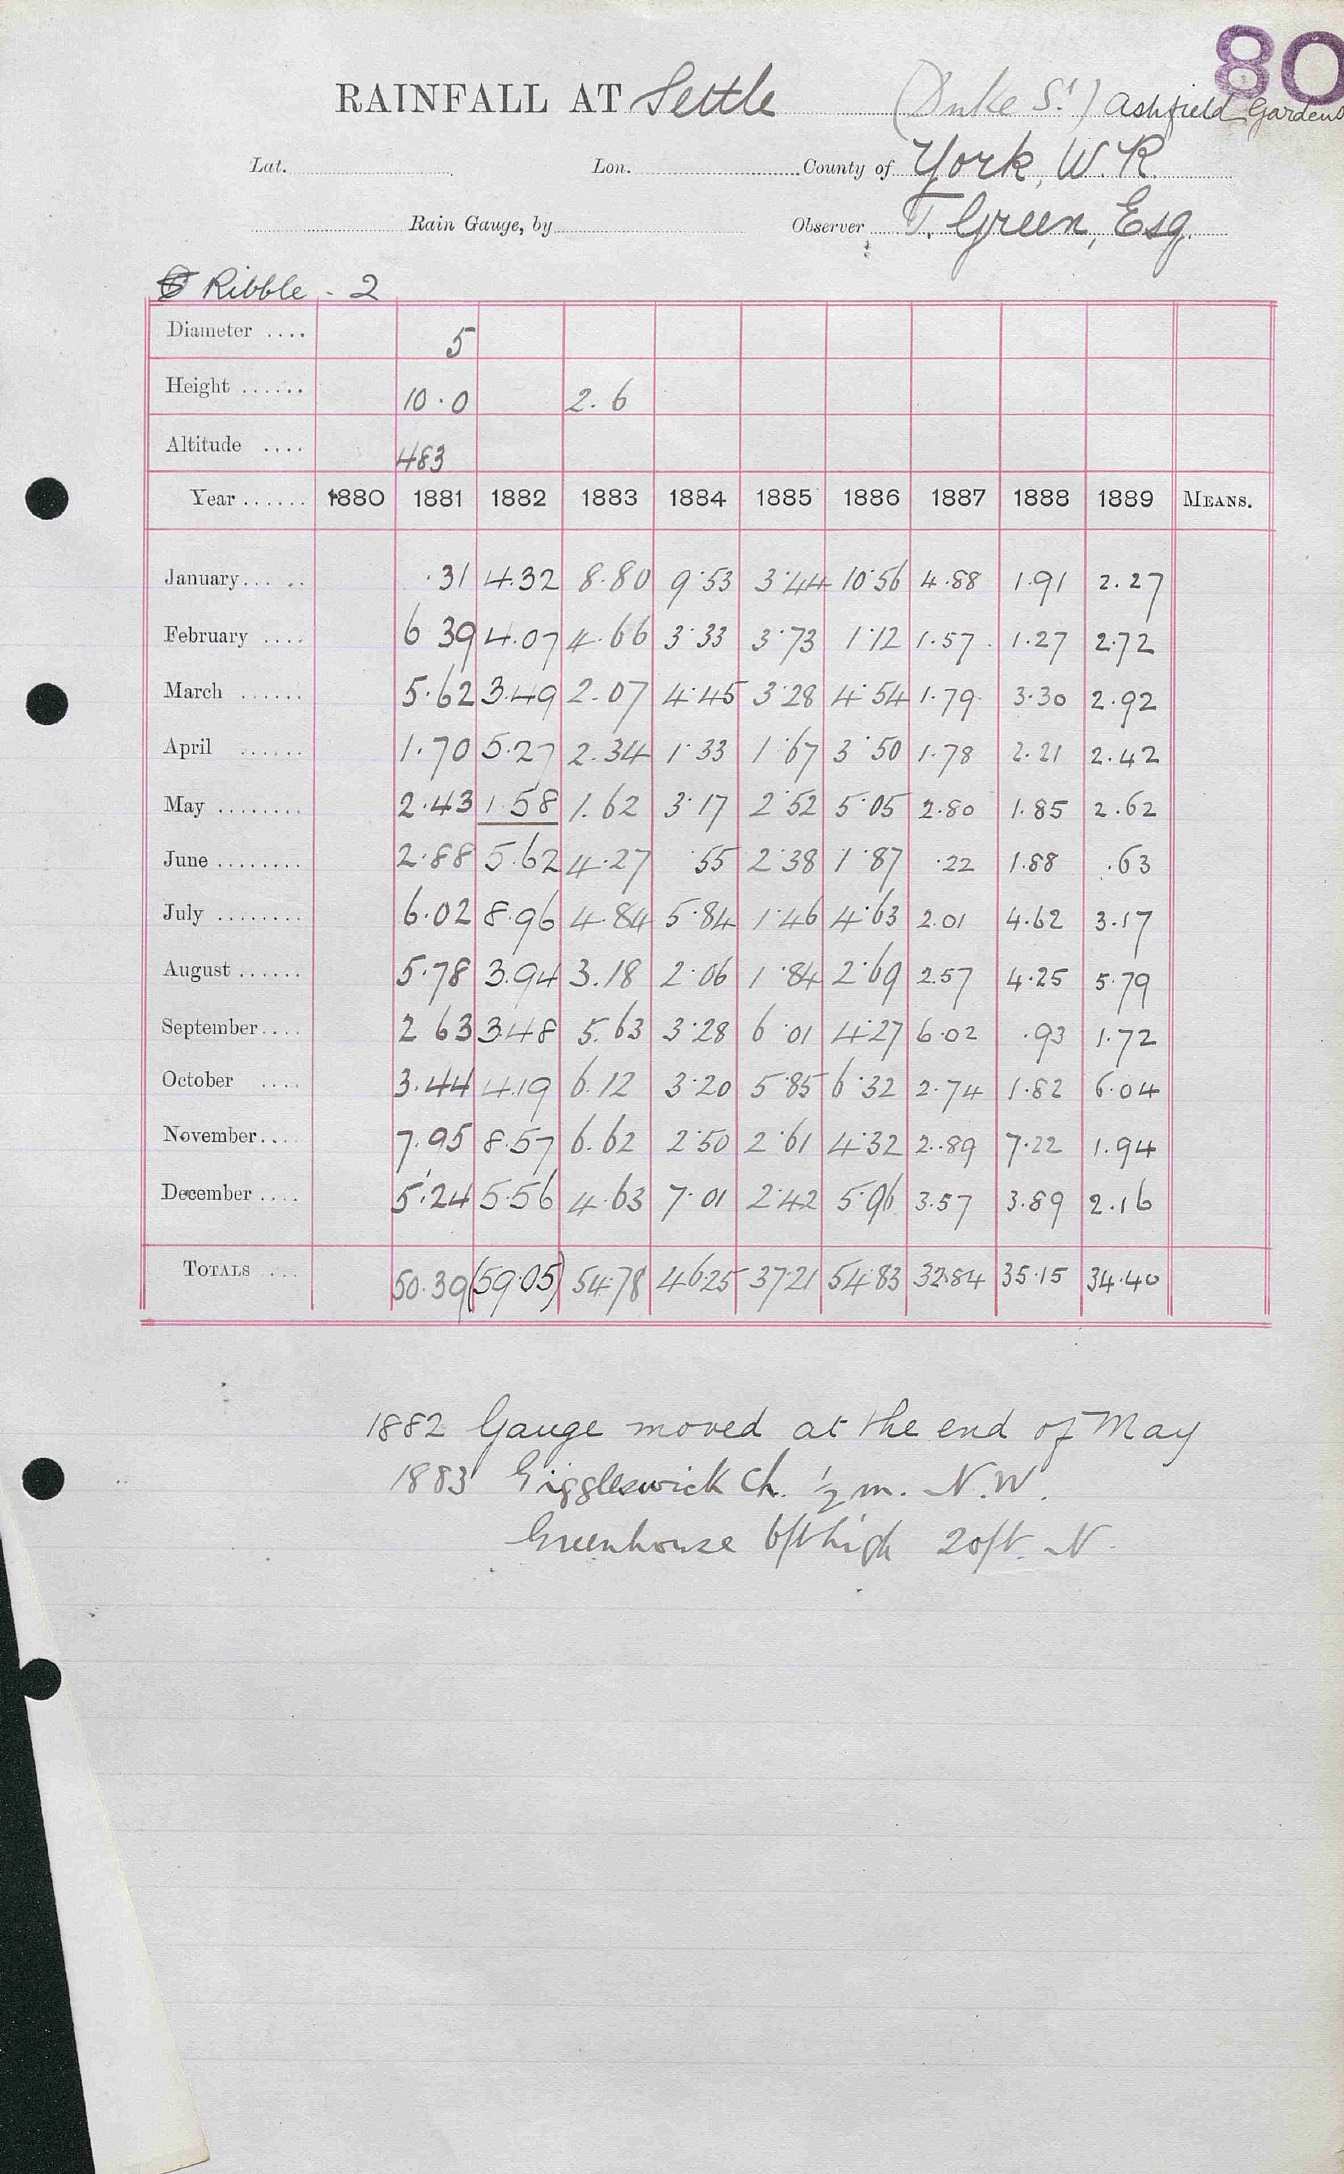 80
RAINFALL AT Settle (Duke St) Ashfield Gardens
Lat. Lon. County of York, W.R.
Rain Gauge, by Observer T. Green, Esq.
Ribble - 2
Diameter .... 5
Height ...... 10.0 2.6
Altitude .... 483
Year ...... 1880 1881 1882 1883 1884 1885 1886 1887 1888 1889 MEANS.
January..... .31 4.32 8.80 9.53 3.44 10.56 4.88 1.91 2.27
February .... 6 39 4.07 4.66 3.33 3.73 1.12 1.57 1.27 2.72
March ...... 5.62 3.49 2.07 4.45 3.28 4.54 1.79 3.30 2.92
April ...... 1.70 5.27 2.34 1.33 1.67 3.50 1.78 2.21 2.42
May ........ 2.43 1.58 1.62 3.17 2.52 5.05 2.80 1.85 2.62
June ........ 2.88 5.62 4.27 .55 2.38 1.87 .22 1.88 .63
July ........ 6.02 8.96 4.84 5.84 1.46 4.63 2.01 4.62 3.17
August ...... 5.78 3.94 3.18 2.06 1.84 2.69 2.57 4.25 5.79
September.... 2 63 3.48 5.63 3.28 6.01 4.27 6.02 .93 1.72
October .... 3.44 4.19 6.12 3.20 5.85 6.32 2.74 1.82 6.04
November.... 7.95 8.57 6.62 2.50 2.61 4.32 2.89 7.22 1.94
December .... 5.24 5.56 4.63 7.01 2.42 5.96 3.57 3.89 2.16
TOTALS .... 50.39 (59.05) 54.78 46.25 37.21 54.83 32.84 35.15 34.40
1882 Gauge moved at the end of May
1883 Giggleswick Ch. ½ m. N.W.
Greenhouse 6ft high 20ft. N.